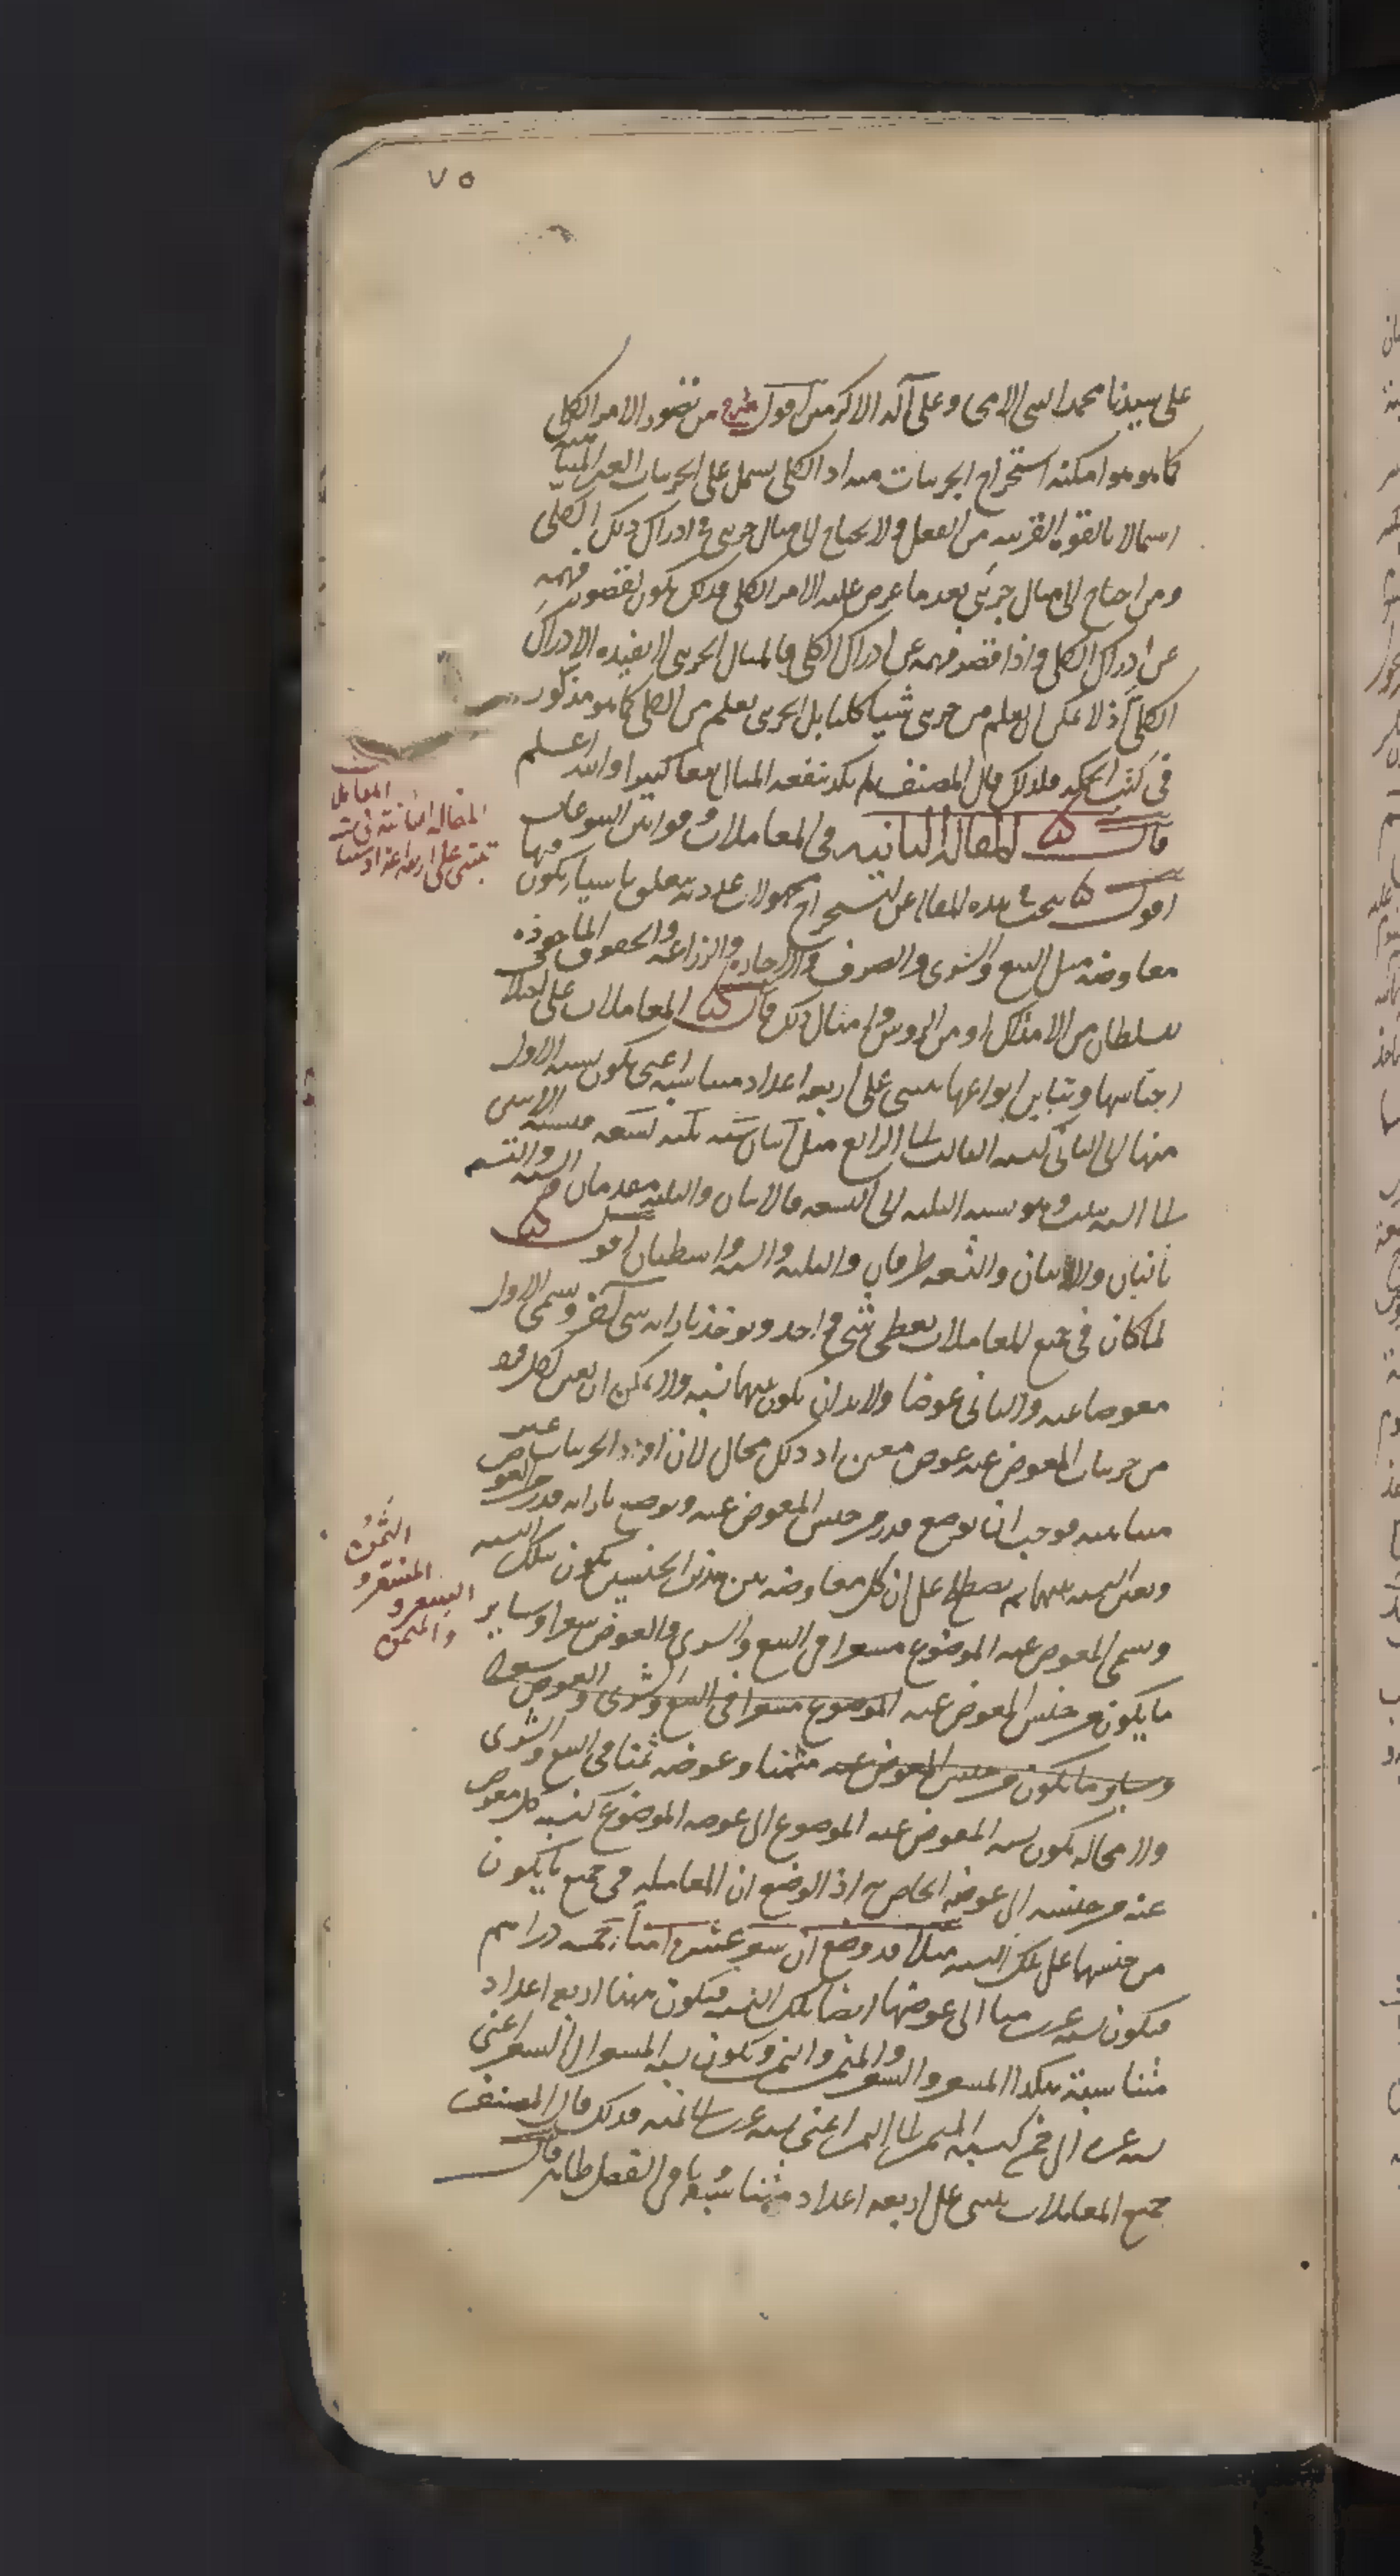 ٧٥
على سيدنا محمد النبي الامي وعلى آله الاكرمين اقول شرح من تصور الامر الكلي
كما هو هو امكنه استخراج الجزييات منه اذ الكلي يشمل على الجزييات الغير المتناهية
اشمالا بالقوه القريبه من الفعل ولا يحتاج الى مثال جزيي في ادراك ذلك الكلي
ومن احتاج الى مثال جزئي بعد ما عرض عليه الامر الكلي فذلك يكون لقصور فهمه
عن ادراك الكلي واذا قصر فهمه عن ادراك الكلي فالمثال الجزيي لا يفيده الادراك
الكلي اذ لا يمكن ان يعلم من جزيي شيا كليا بل الجزيي يعلم من الكلي كما هو مذكور
في كتب الحكمه فلذلك قال المصنف لم يكد ينفعه المثال نفعا كبيرا والله اعلم
قال المقاله الثانيه في المعاملات وقوانين البيوعات
اقول يبحث في هذه المقاله عن استخراج مجهولات عدديه يتعلق باشيا يكون فيها
معاوضه مثل البيع والشرى والصرف والاجاره والزراعه والحقوق الماخوذه
للسلطان من الاملاك او من الروس وامثال ذلك قال المعاملات على اختلاف
اجناسها وتباين انواعها يبنى على اربعه اعداد متناسبه اعني يكون نسبه الاول
منها الى الثاني كنسبه الثالث الى الرابع مثل اثنان سته ثلثه تسعه فنسبه الاثنين
الى السته ثلث وهو نسبه الثلثه الى التسعه فالاثنان والثلثه مقدمان والسته والتسعه
تاليان والاثنان والتسعه طرفان والثلثه والسته واسطتان اقول
لما كان في جميع المعاملات يعطى شي واحد ويوخذ بازايه شي آخر وسمى الاول
معوضا عنه والثاني عوضا ولا بد ان يكون بينهما نسبه ولا يمكن ان يعين لكل فرد
من جزييات المعوض عنه عوض معين اذ ذلك محال لان افراد الجزييات غير
متناهيه فوجب ان يوضع قدر من جنس المعوض عنه ويوضع بازايه قدر من العوض
وبعد النسبه بينهما ثم يصطلح على ان كل معاوضه بين هذين الجنسين يكون بتلك النسبه
وسمى المعوض عنه الموضوع مسعرا في البيع والشرى والعوض سعرا وساير
ما يكون من جنس المعوض عنه الموضوع مسعرا في البيع والشرى والعوض سعرا
وساير ما يكون من جنس المعوض عنه مثمنا وعوضه ثمنا في البيع والشرى
ولا محاله يكون نسبه المعوض عنه الموضوع الى عوضه الموضوع كنسبه كل معوض
عنه من جنسه الى عوضه الخاص به اذ الوضع ان المعامله في جميع ما يكون
من جنسها على تلك النسبه مثلا قد وضع ان سعر عشره امنا خمسه دراهم
فيكون نسبه عشرين منا الى عوضها ايضا بتلك النسبه فيكون ههنا اربع اعداد
متناسبة هكذا المسعر والسعر والمثمن والثمن ويكون نسبه المسعر الى السعر اعني
نسبه عشره الى خمسه كنسبه المثمن الى الثمن اعني نسبه عشرين الى ثمنه فذلك قال المصنف
جميع المعاملات يبنى على اربعه اعداد متناسبه وباقي الفصل ظاهر قال
المقاله الثانية في المعامل
تبتنى على اربعة اعداد متنا
الثمن و
المسعر و
السعر و
والمثمن